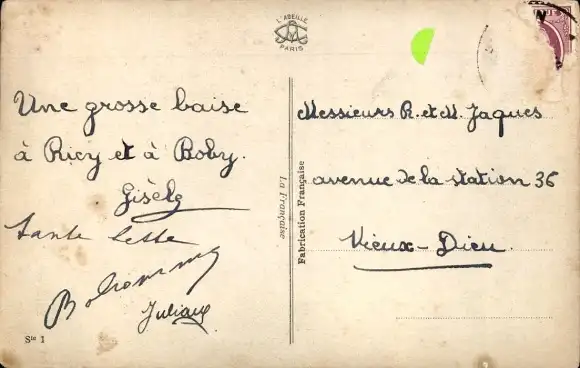 L'ABEILLE
PARIS
Une grosse baise
à Ricy et à Boby.
Gisèle
tante
Messieurs R. et M. Jaques
avenue de la station 36
Vieux-Dieu.
La Française
Fabrication Française
Ste 1